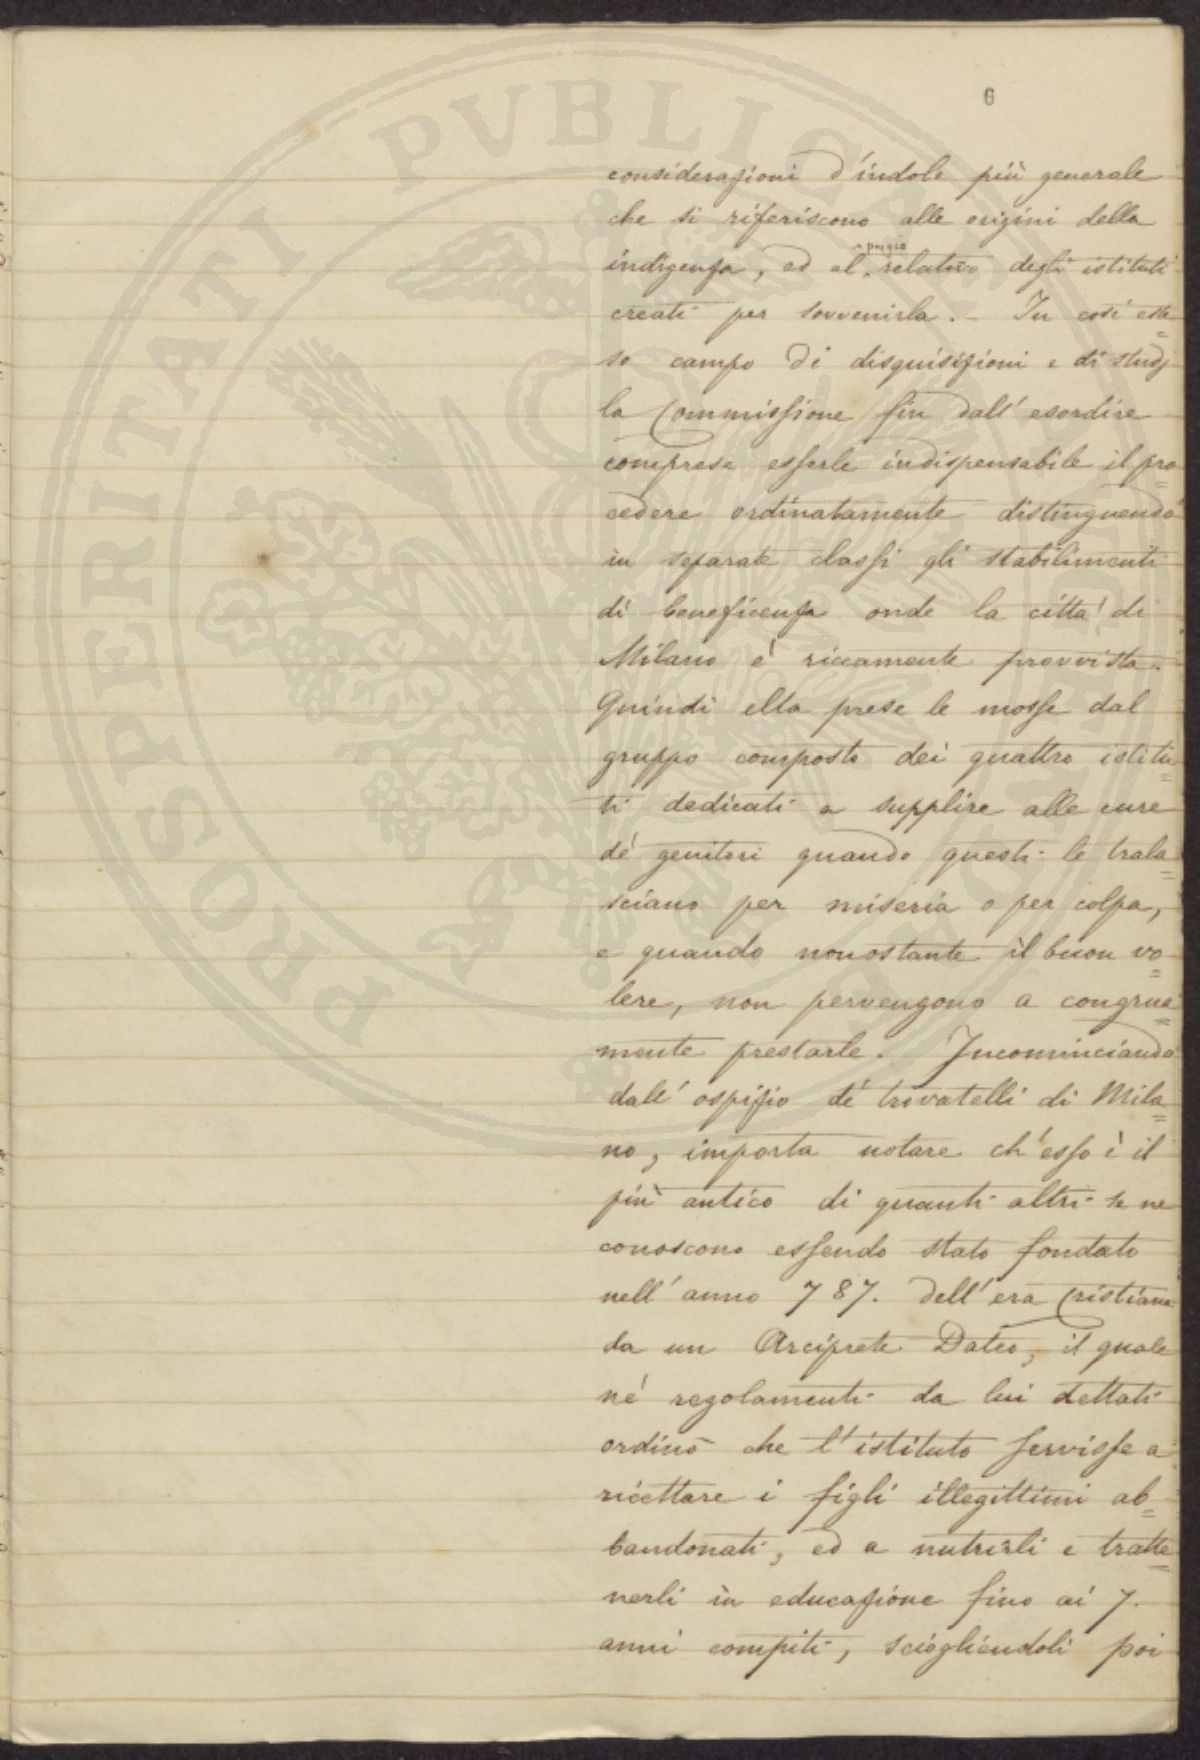 PROSPERITATI PVBLICAE
6
considerazioni d'indole più generale
che si riferiscono alle origini della
pregio
indigenza, ed al relativo degli istituti
creati per sovvenirla. - In così este=
so campo di disquisizioni e di studj
la Commissione fin dall' esordire
comprese esserle indispensabile il pro=
cedere ordinatamente distinguendo
in separate classi gli stabilimenti
di beneficenza onde la città di
Milano è riccamente provvista.
Quindi ella prese le mosse dal
gruppo composto dei quattro istitu=
ti dedicati a supplire alle cure
de' genitori quando questi le trala=
sciano per miseria o per colpa,
e quando nonostante il buon vo=
lere, non pervengono a congrua=
mente prestarle. Incominciando
dall' ospizio de' trovatelli di Mila=
no, importa notare ch'esso è il
più antico di quanti altri se ne
conoscono essendo stato fondato
nell' anno 787. dell' era Cristiana
da un Arciprete Dateo, il quale
ne' regolamenti da lui dettati
ordinò che l'istituto servisse a
ricettare i figli illegittimi ab=
bandonati, ed a nutrirli e tratte=
nerli in educazione fino ai 7.
anni compiti, sciogliendoli poi